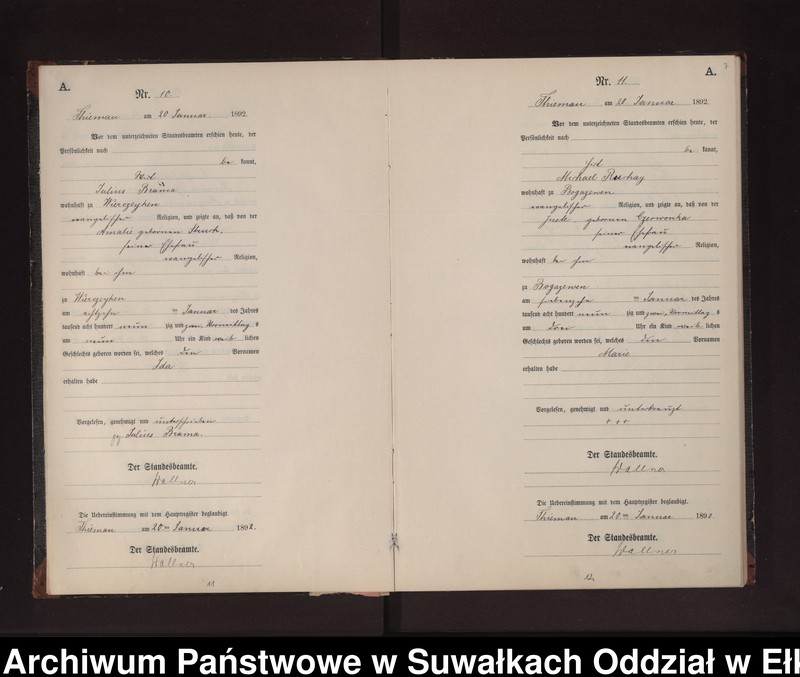 A.
Nr. 10
Thieman am 20 Januar 1892
Vor dem unterzeichneten Standesbeamten erschien heute, der
Persönlichkeit nach
be kannt,
Julius Brama
wohnhaft zu
evangelischer Religion, und zeigte an, daß von der
Amalie gebornen
seiner Ehefrau
evangelischer Religion,
wohnhaft bei ihm
zu
am achtzehn ten Januar des Jahres
tausend acht hundert neun zig und zwei Vormittag s
um neun Uhr ein Kind weib lichen
Geschlechts geboren worden sei, welches den Vornamen
Ida
erhalten habe
Vorgelesen, genehmigt und unterschrieben
gz Julius Brama.
Der Standesbeamte.
Wallner
Die Uebereinstimmung mit dem Hauptregister beglaubigt.
Thieman am 20ten Januar 1892.
Der Standesbeamte.
Wallner
11
A.
7
Nr. 11
Thieman am 20 Januar 1892
Vor dem unterzeichneten Standesbeamten erschien heute, der
Persönlichkeit nach
be kannt,
Michael
wohnhaft zu Rogazewen
evangelischer Religion, und zeigte an, daß von der
gebornen Czerwonka
seiner Ehefrau
evangelischer Religion,
wohnhaft bei ihm
zu Rogazewen
am siebenzehn ten Januar des Jahres
tausend acht hundert neun zig und zwei, Vormittag s
um drei Uhr ein Kind weib lichen
Geschlechts geboren worden sei, welches den Vornamen
Marie
erhalten habe
Vorgelesen, genehmigt und unterkreuzt
+ + +
Der Standesbeamte.
Wallner
Die Uebereinstimmung mit dem Hauptregister beglaubigt.
Thieman am 20ten Januar 1892
Der Standesbeamte.
Wallner
12
Archiwum Państwowe w Suwałkach Oddział w Ełk